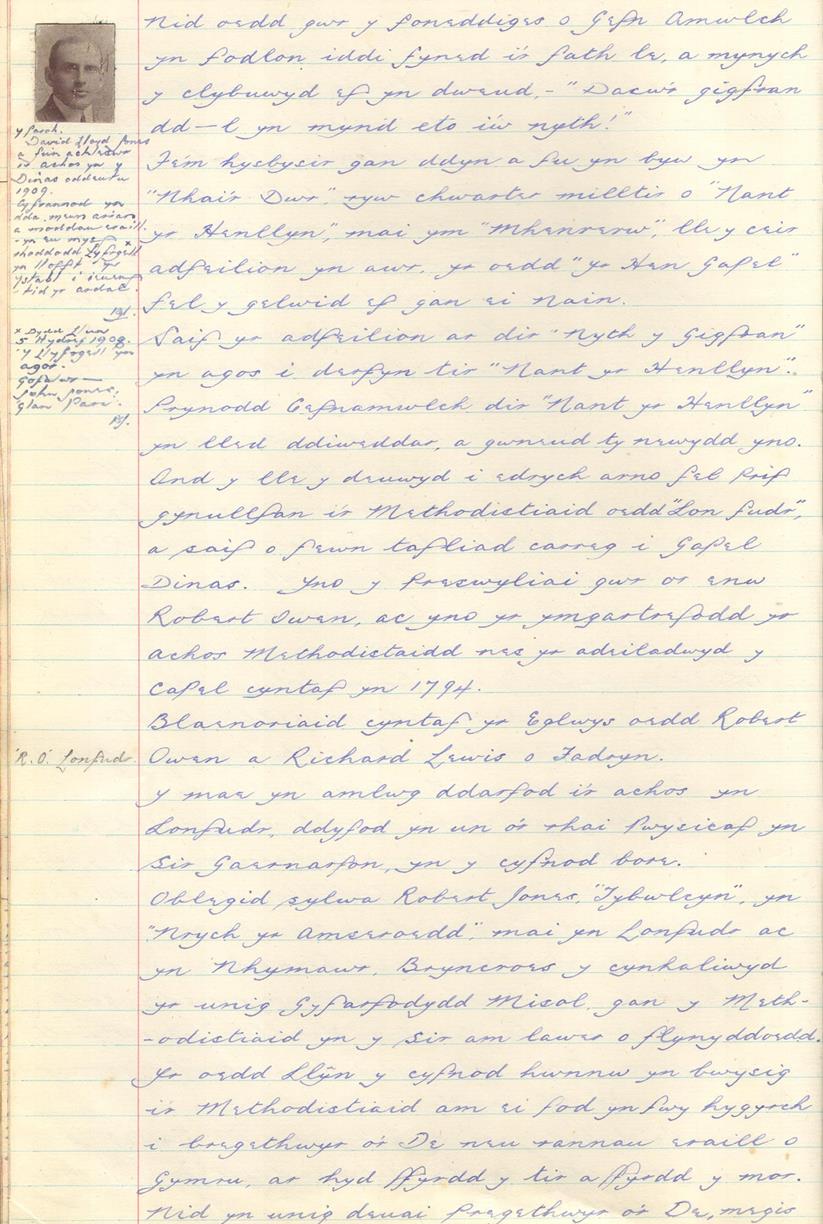 Nid oedd gwr y foneddiges o Gefn Amwlch
yn fodlon iddi fyned i'r fath le, a mynych
y clybuwyd ef yn dweud,-"Dacw'r gigfran
dd—l yn mynd eto i'w nyth!"
Fe'm hysbysir gan ddyn a fu yn byw yn
"Nhai'r Dwr", ryw chwarter milltir o "Nant
yr Henllyn", mai ym lle y ceir
adfeilion yn awr, yr oedd "yr Hen Gapel"
fel y gelwid ef gan ei Nain.
Saif yr adfeilion ar dir "Nyth y Gigfran"
yn agos i derfyn tir "Nant yr Henllyn".
Prynodd Cefnamwlch dir "Nant yr Henllyn"
yn lled ddiweddar, a gwneud ty newydd yno.
Ond y lle y deuwyd i edrych arno fel prif
gynullfan i'r Methodistiaid oedd "Lon fudr",
a saif o fewn tafliad carreg i Gapel
Dinas. Yno y preswyliai gwr o'r enw
Robert Owen, ac yno yr ymgartrefodd yr
achos Methodistaidd nes yr adeiladwyd y
capel cyntaf yn 1794.
Blaenoriaid cyntaf yr Eglwys oedd Robert
Owen a Richard Lewis o Fadryn.
Y mae yn amlwg ddarfod i'r achos yn
Lonfudr, ddyfod yn un o'r rhai pwysicaf yn
Sir Gaernarfon, yn y cyfnod bore.
Oblegid sylwa Robert Jones, "Tybwlcyn", yn
"Nrych yr Amseroedd", mai yn Lonfudr ac
yn Nhymawr, Bryncroes y cynhaliwyd
yr unig Gyfarfodydd Misol, gan y Meth-
-odistiaid yn y Sir am lawer o flynyddoedd.
Yr oedd Llŷn y cyfnod hwnnw yn bwysig
i'r Methodistiaid am ei fod yn fwy hygyrch
i bregethwyr o'r De neu rannau eraill o
Gymru, ar hyd ffyrdd y tir a ffyrdd y mor.
Nid yn unig deuai pregethwyr o'r De, megis
y Parch.
David Lloyd Jones
a fu'n
i'r achos yn y
Dinas oddeutu
1909.
Cyfrannod yn
dda, mewn arian
a moddau eraill.
-yn eu mysg x
rhoddodd Lyfrgell
yn llofft yr
ystabl i ieuenc
-tid yr ardal.
x Dydd Llun
5 Hydref 1908.
Y Llyfrgell yn
agor.
Gofalwr—
John Jones,
Glan Parc.
R. O. Lonfudr.